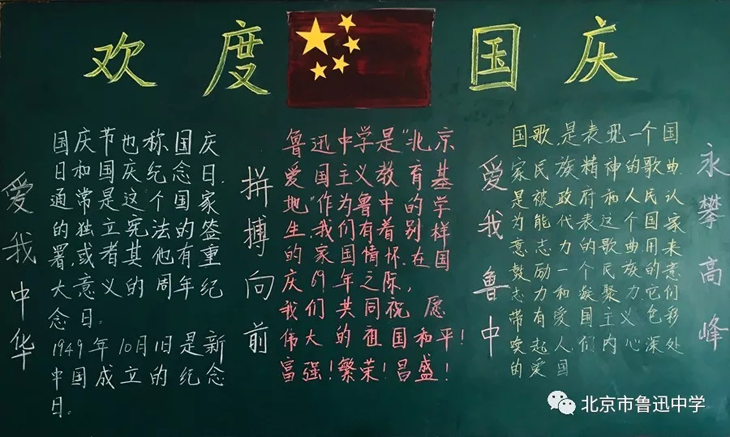 欢度国庆
爱我中华
国庆节也称国庆
日和国庆纪念日.
通常是这个国家
的独立宪法的签
署,或者其他有重
大意义的周年纪
念日.
1949年10月1日是新
中国成立的纪念
日.
拼搏向前
鲁迅中学是"北京
爱国主义教育基
地"作为鲁中的学
生,我们有着别样
的家国情怀.在国
庆69年之际,
我们共同祝愿
伟大的祖国和平!
富强!繁荣!昌盛!
爱我鲁中
国歌,是表现一个国
家民族精神的歌曲.
是被政府和人民认
为能代表这个国家
意志力的歌曲用来
鼓励一个民族的意
志力和凝聚力.它们
带有爱国主义色彩
唤起人们内心深处
的爱国
永攀高峰
北京市鲁迅中学